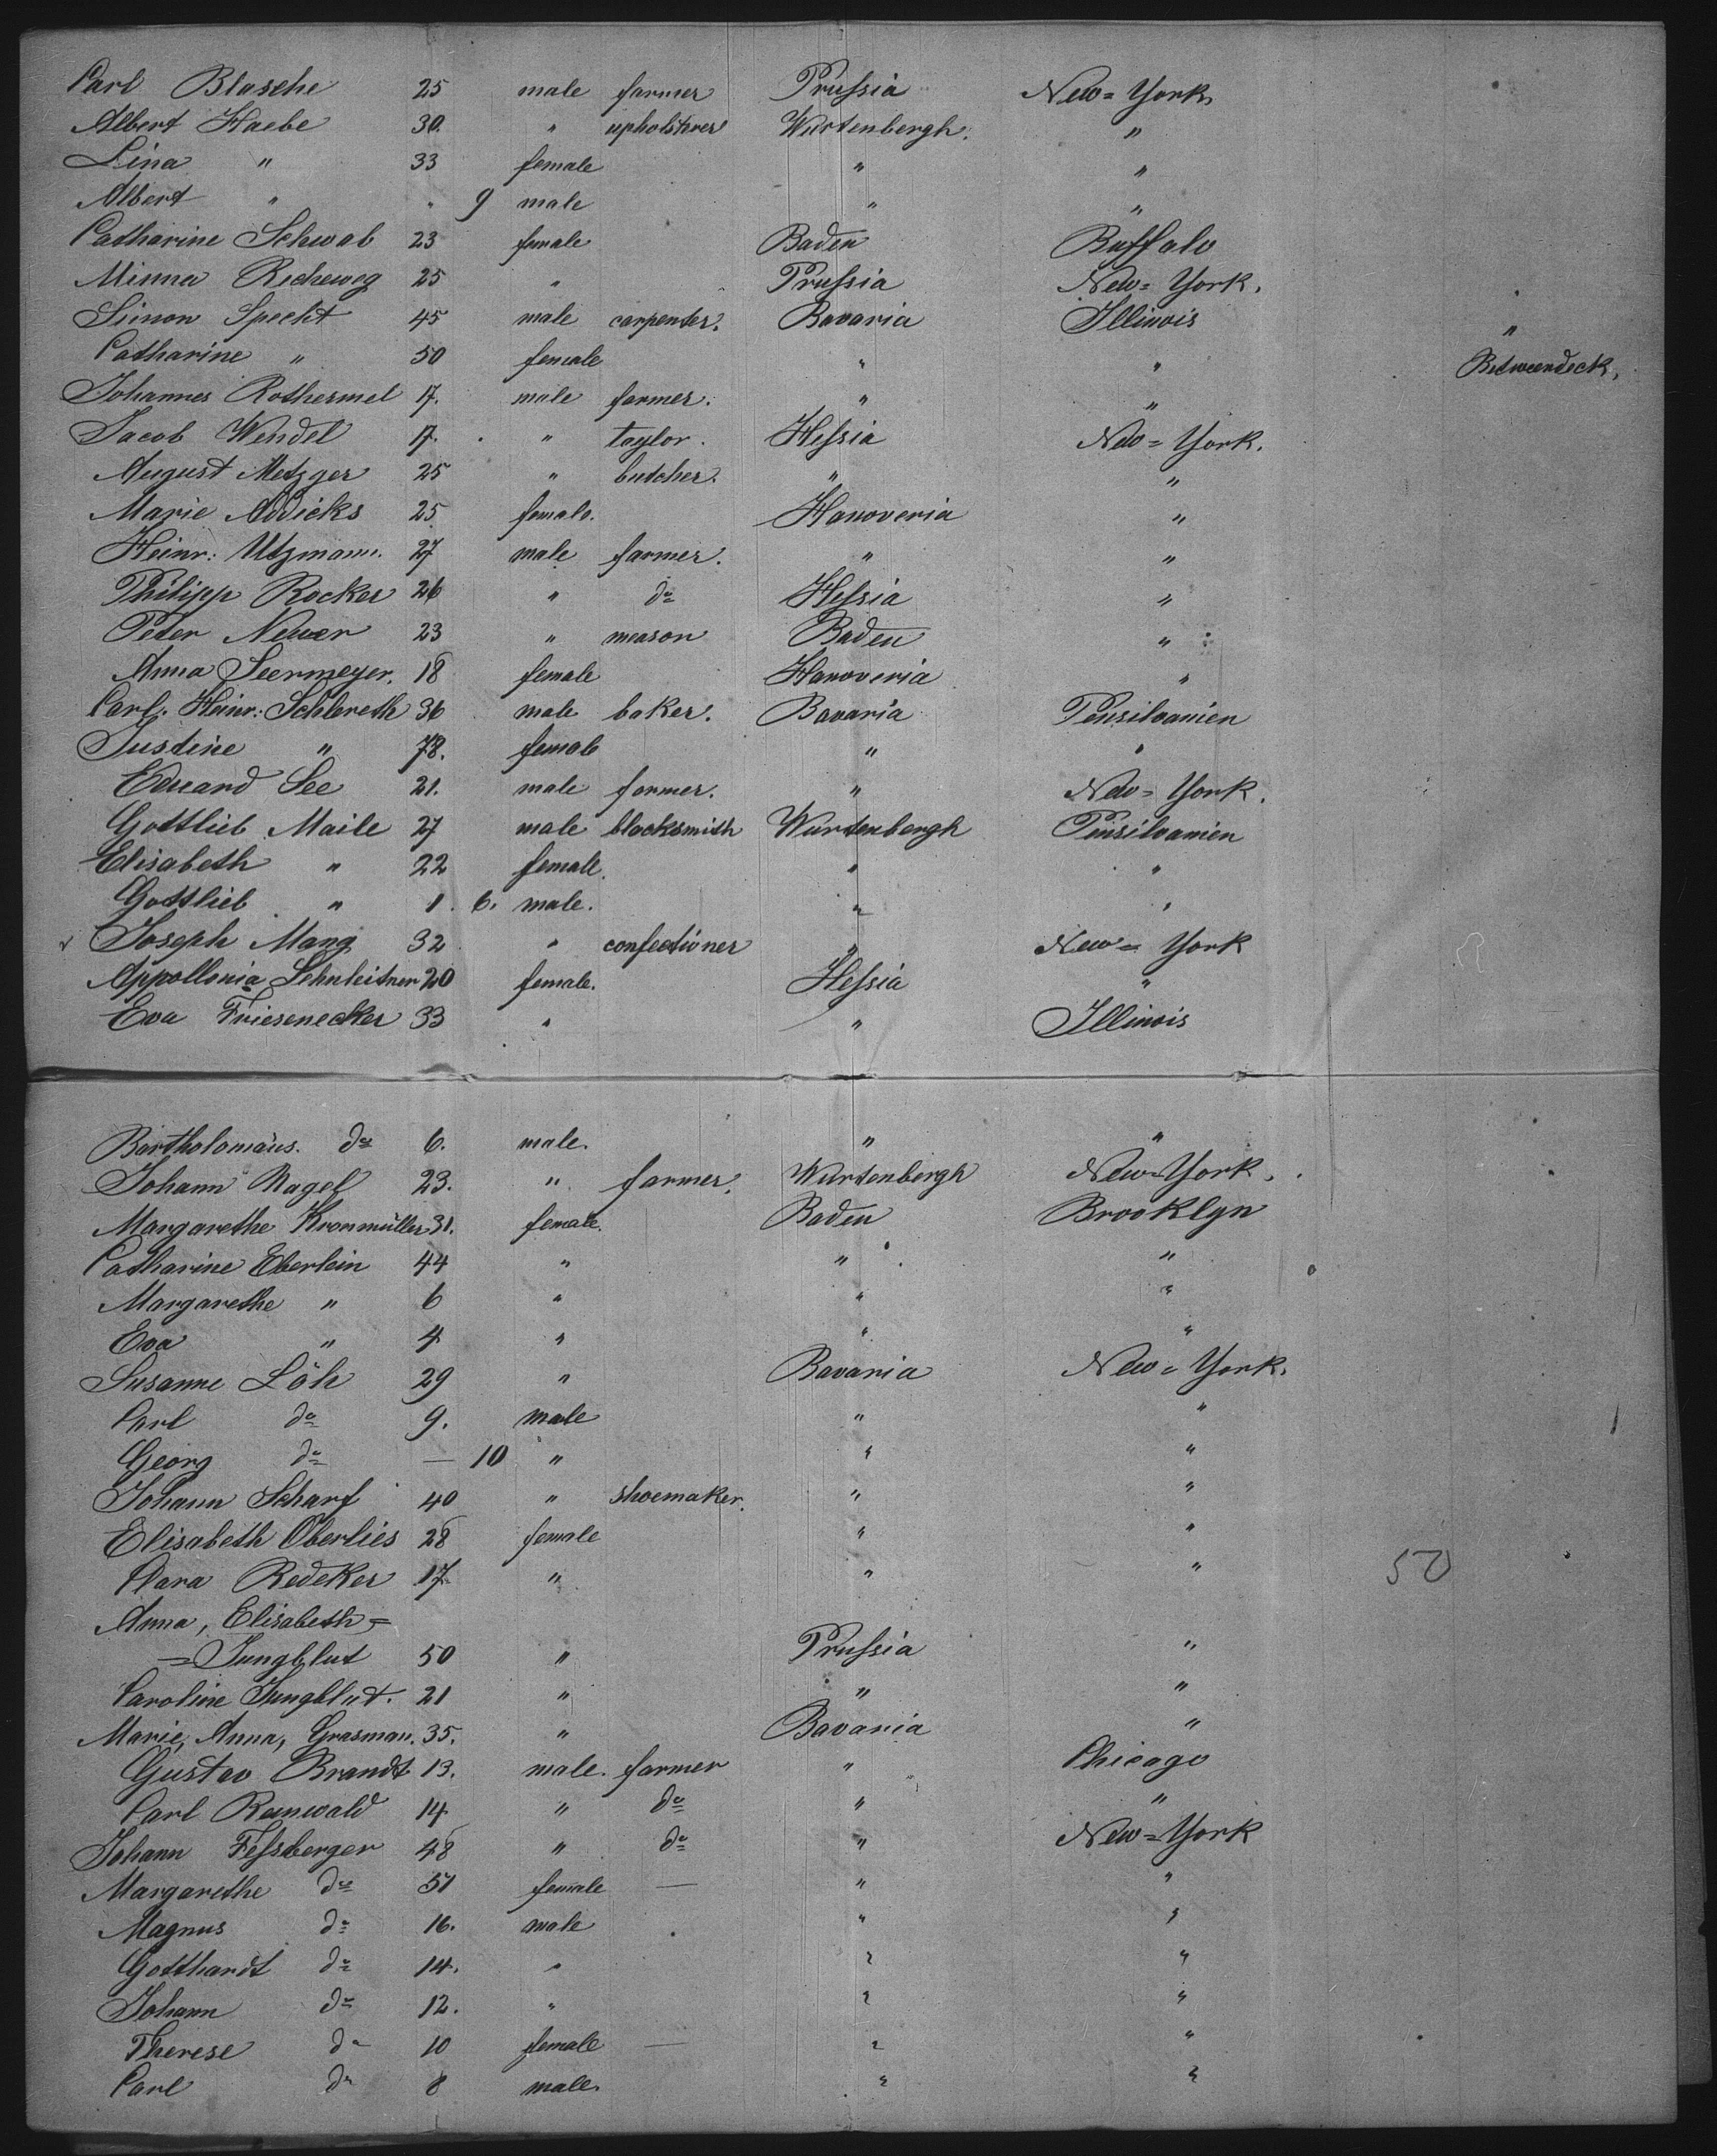 Carl Blasche 25 male farmer Prussia New=York
Albert Haebe 30. " upholsterer Wurtenbergh. "
Lina " 33 female " "
Albert " " 9 male " "
Catharine Schwab 23 female Baden Buffalo
Minna Richeweg 25 " Prussia New=York.
Simon Specht 45 male carpenter. Bavaria Illinois "
Catharine " 50 female " " Betweendeck,
Johannes Rothermel 17. male farmer. " "
Jacob Wendel 17. " taylor. Hessia New=York.
August Metzger 25 " butcher. " "
Marie Addicks 25 female. Hanoveria "
Heinr: Utzmann. 27 male farmer. " "
Philipp Rocker 26 " do Hessia "
Peter Neuer 23 " meason Baden "
Anna Seermeyer. 18 female Hanoveria "
Carl. Heinr: Schlereth 36 male baker. Bavaria Pensilvanien
Justine " 78. female " "
Eduard See 21. male farmer. " New=York.
Gottlieb Maile 27 male blacksmith Wurtenbergh Pensilvanien
Elisabeth " 22 female. " "
Gottlieb " 1. 6. male. " "
Joseph Mang 32 " confectioner " New=York
Appollonia Schnleitner 20 female. Hessia "
Eva Friesenecker 33 " " Illinois
Bartholomäus. do 6. male. " "
Johann Nagel 23. " farmer. Wurtenbergh New=York.
Margarethe Kronmüller 31. female. Baden Brooklyn
Catharine Eberlein 44 " " "
Margarethe " 6 " " "
Eva " 4 " " "
Susanne Löh 29 " Bavaria New=York.
Carl do 9. male " "
Georg do — 10 " " "
Johann Scharf 40 " shoemaker. " "
Elisabeth Oberlies 28 female " "
Clara Redeker 17 " " "
Anna, Elisabeth=
=Jungblut 50 " Prussia "
Caroline Jungblut. 21 " " "
Marie, Anna, Grasman. 35. " Bavaria "
Gustav Brandt 13. male. farmer " Chicago
Carl Reinwald 14 " do " "
Johann Fessberger 48 " do " New=York
Margarethe do 51 female — " "
Magnus do 16. male " "
Gotthardt do 14. " " "
Johann do 12. " " "
Therese do 10 female — " "
Carl do 8 male. " "
50